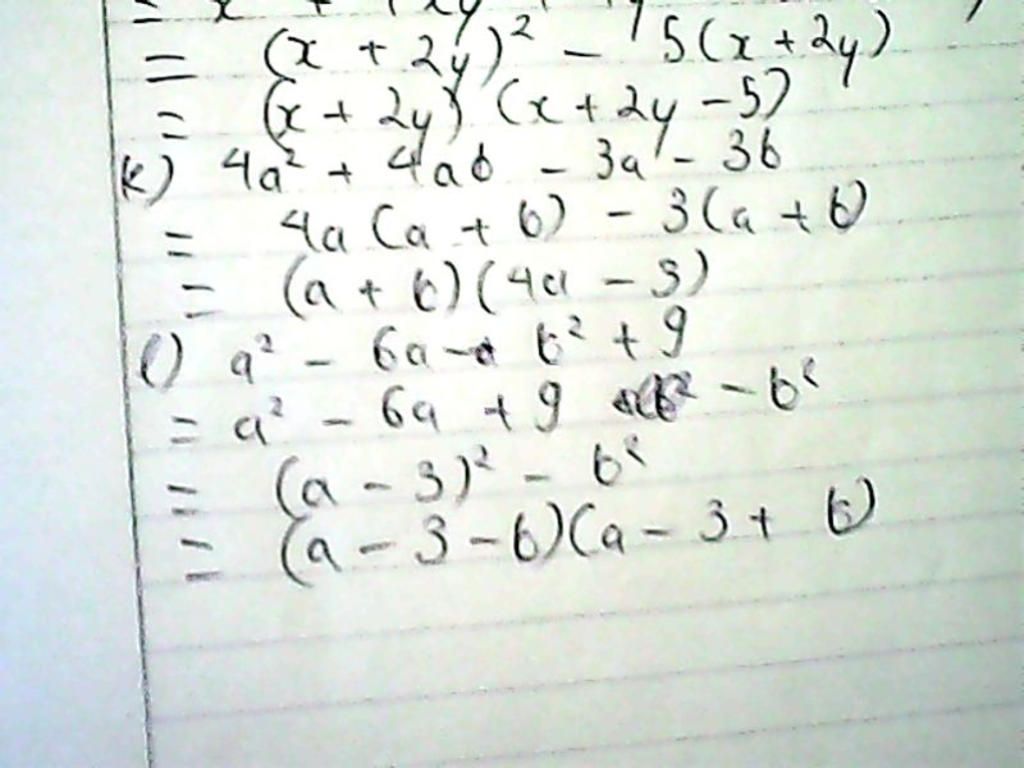 = (x + 2y)² - 5(x + 2y)
= (x + 2y) (x + 2y - 5)
k) 4a² + 4ab - 3a - 3b
= 4a (a + b) - 3(a + b)
= (a + b)(4a - 3)
l) a² - 6a - b² + 9
= a² - 6a + 9 - b²
= (a - 3)² - b²
= (a - 3 - b)(a - 3 + b)